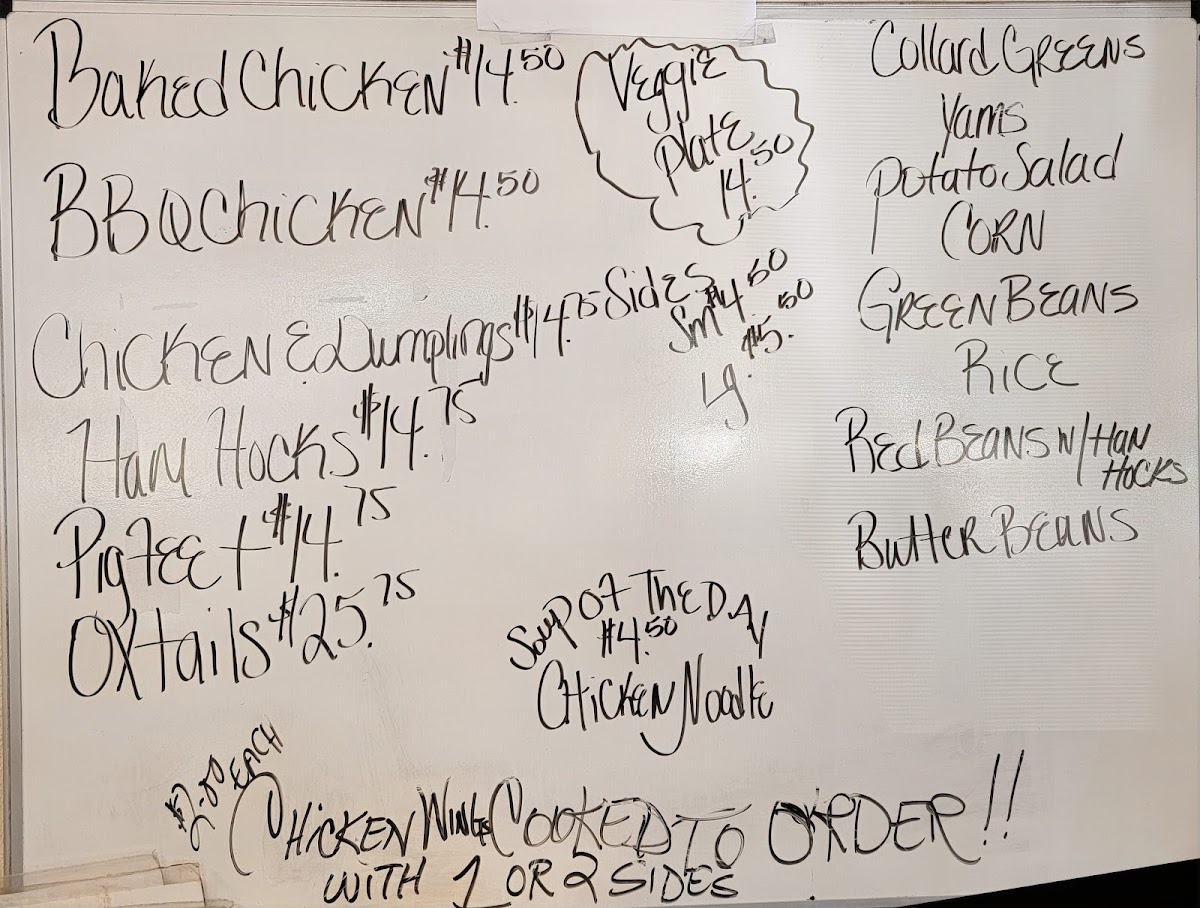 Baked Chicken $14.50
BBQ Chicken $14.50
Chicken & Dumplings $14.75
Ham Hocks $14.75
Pig Feet $14.75
Oxtails $25.75
Veggie
Plate
14.50
Sides
Sm $4.50
Lg. $5.50
Collard Greens
Yams
Potato Salad
Corn
Green Beans
Rice
Red Beans w/ Ham
Hocks
Butter Beans
Soup of The Day
$4.50
Chicken Noodle
$2.00 EACH
CHICKEN WINGS COOKED TO ORDER!!
WITH 1 OR 2 SIDES